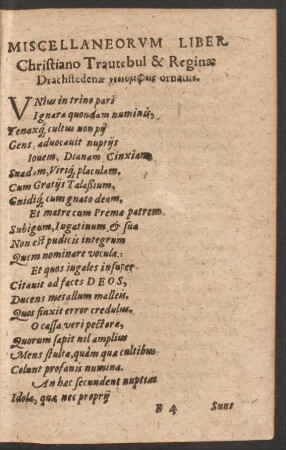 MISCELLANEORVM LIBER
Christiano Trautebul & Reginæ
Drachstedenæ νεονυμφοις ornatiss.
VNius in trino pari
Ignara quondam numinis,
Tenaxq́, cultus non pij
Gens, aduocauit nuptijs
Iouem, Dianam Cinxiam,
Suadam, Viriq́, placulam,
Cum Gratijs Talassium,
Gnidiq́, cum gnato deam,
Et matre cum Prema patrem
Subigum, Iugatinum, & sua
Non est pudicis integrum
Quem nominare vocula:
Et quos iugales insuper
Citauit ad faces DEOS,
Ducens metallum malleis,
Quos finxit error credulus.
O cassa veri pectora,
Quorum sapit nil amplius
Mens stulta, quàm quæ cultibus
Colunt profanis numina.
An hæc secundent nuptias
Idola, quæ nec proprij
B 4 Sunt